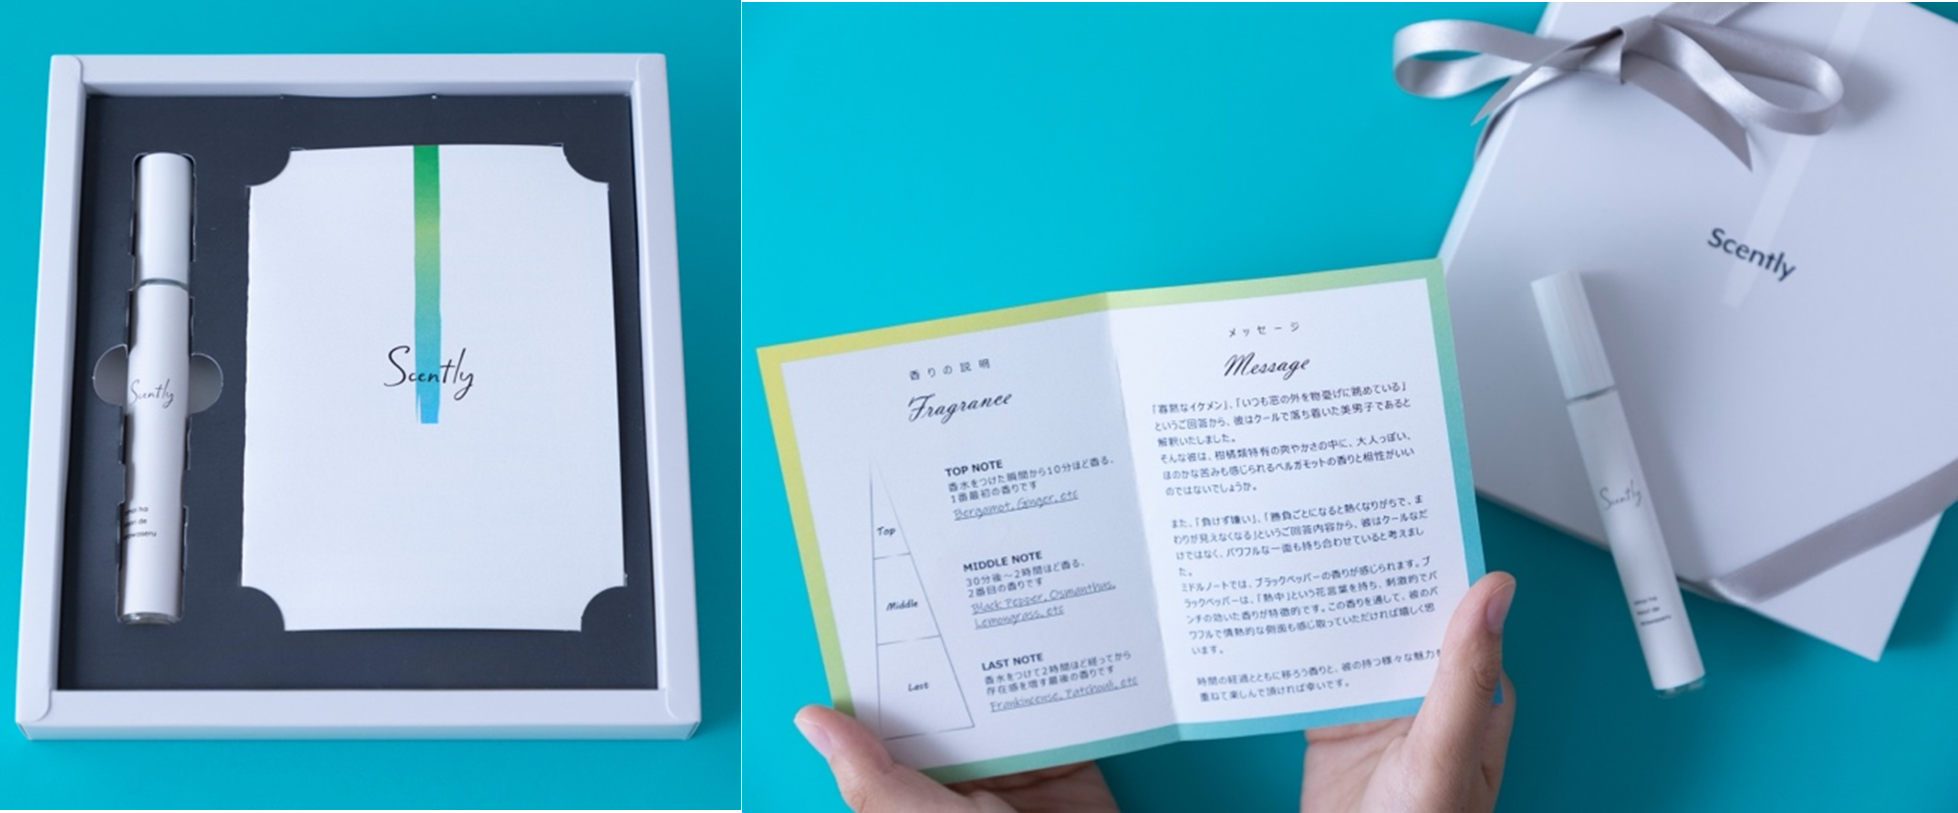 Scently
Scently
香りの説明
Fragrance
Top
Middle
Last
TOP NOTE
香水をつけた瞬間から10分ほど香る、
1番最初の香りです
Bergamot, Ginger, etc
MIDDLE NOTE
30分後~2時間ほど香る、
2番目の香りです
Black Pepper, Osmanthus,
Lemongrass, etc
LAST NOTE
香水をつけて2時間ほど経ってから
存在感を増す最後の香りです
Frankincense, Patchouli, etc
メッセージ
Message
「寡黙なイケメン」、「いつも窓の外を物憂げに眺めている」
というご回答から、彼はクールで落ち着いた美男子であると
解釈いたしました。
そんな彼は、柑橘類特有の爽やかさの中に、大人っぽい、
ほのかな苦みも感じられるベルガモットの香りと相性がいい
のではないでしょうか。
また、「負けず嫌い」、「勝負ごとになると熱くなりがちで、ま
わりが見えなくなる」というご回答内容から、彼はクールなだ
けではなく、パワフルな一面も持ち合わせていると考えまし
た。
ミドルノートでは、ブラックペッパーの香りが感じられます。ブ
ラックペッパーは、「熱中」という花言葉を持ち、刺激的でパ
ンチの効いた香りが特徴的です。この香りを通して、彼のパ
ワフルで情熱的な側面も感じ取っていただければ嬉しく思
います。
時間の経過とともに移ろう香りと、彼の持つ様々な魅力を
重ねて楽しんで頂ければ幸いです。
Scently
Scently